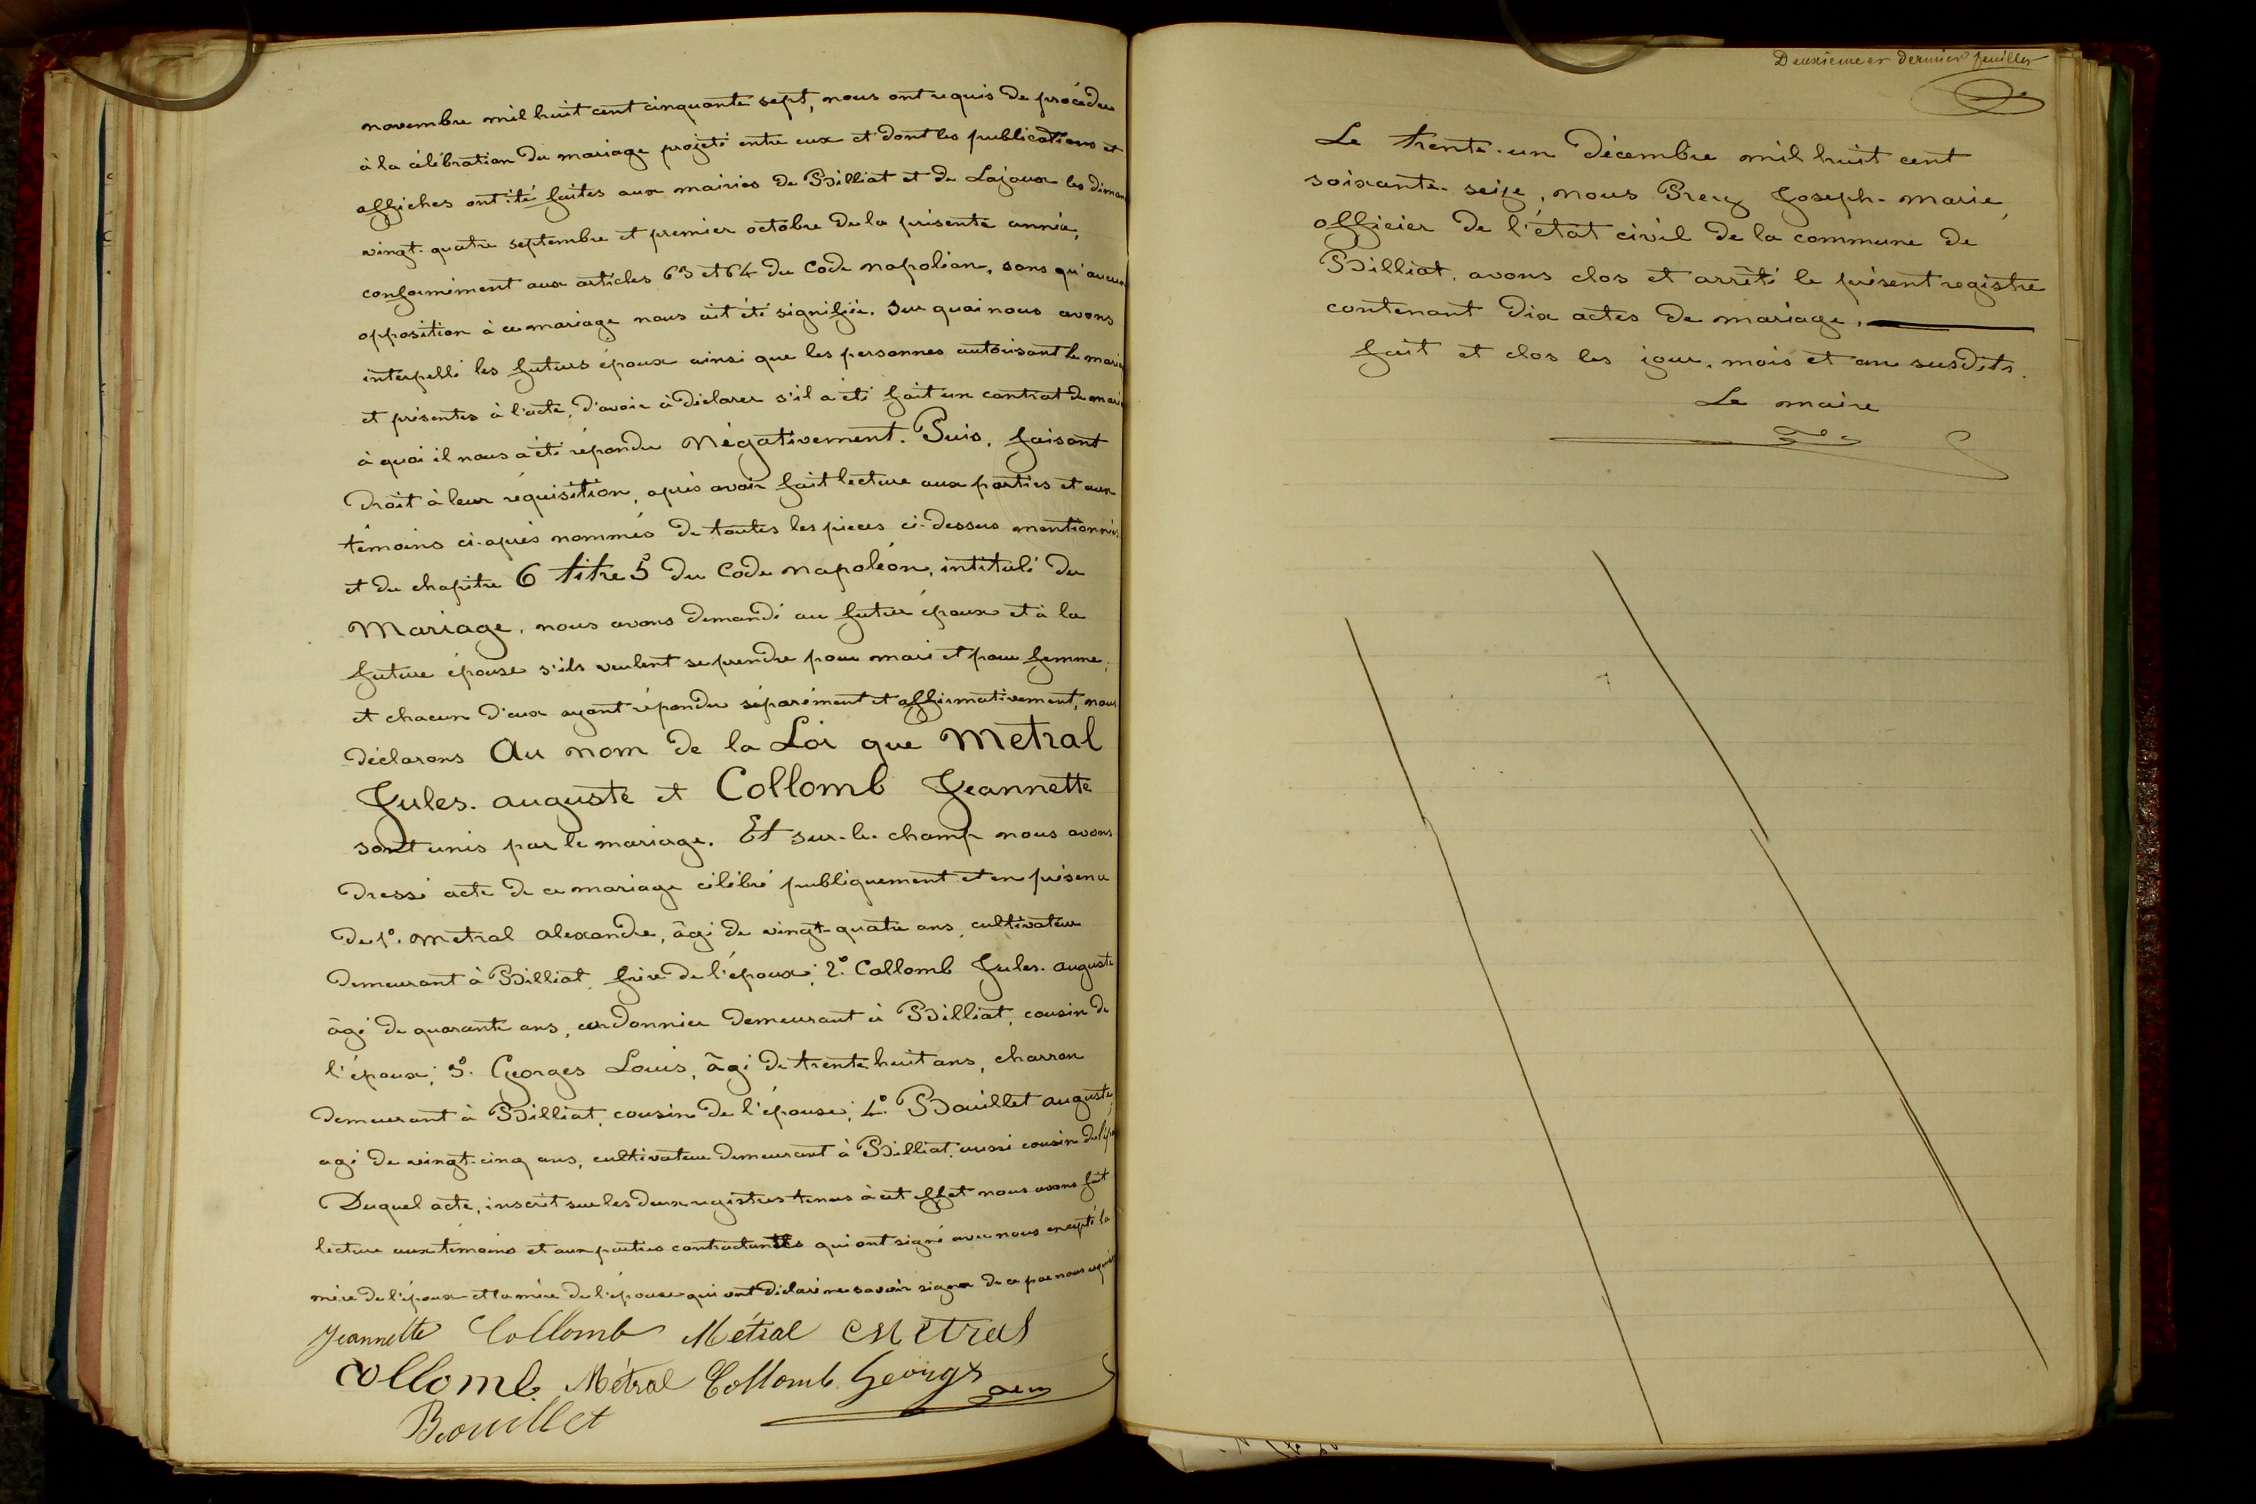 novembre mil huit cent cinquante sept, nous ont requis de procéder
à la célébration du mariage projeté entre eux et dont les publications et
affiches ont été faites aux mairies de Billiat et de Lajoux les diman
vingt-quatre septembre et premier octobre de la présente année,
conformément aux articles 63 et 64 du Code napoléon, sans qu'aucun
opposition à ce mariage nous ait été signifiée. Sur quoi nous avons
interpellé les futurs époux ainsi que les personnes autorisant le maria
et présentes à l'acte, d'avoir à déclarer s'il a été fait un contrat de mari
à quoi il nous a été répondu Négativement. Puis, faisant
droit à leur réquisition, après avoir fait lecture aux parties et aux
témoins ci-après nommés de toutes les pièces ci-dessus mentionnées
et du chapitre 6 titre 5 du Code napoléon, intitulé du
Mariage, nous avons demandé au futur époux et à la
future épouse s'ils veulent se prendre pour mari et pour femme,
et chacun d'eux ayant répondu séparément et affirmativement, nous
déclarons Au nom de la Loi que Metral
Jules-auguste et Collomb Jeannette
sont unis par le mariage. Et sur-le-champ nous avons
dressé acte de ce mariage célébré publiquement et en présence
de 1º. Metral alexandre, âgé de vingt-quatre ans, cultivateur
demeurant à Billiat, frère de l'époux; 2º. Collomb Jules-auguste
âgé de quarante ans, cordonnier demeurant à Billiat, cousin de
l'époux; 3º. Georges Louis, âgé de trente huit ans, charron
demeurant à Billiat, cousin de l'épouse; 4º. Bouillet auguste,
agé de vingt-cinq ans, cultivateur demeurant à Billiat, aussi cousin de l'épo
Duquel acte, inscrit sur les deux registres tenus à cet effet nous avons fait
lecture aux témoins et aux parties contractantes qui ont signé avec nous excepté la
mère de l'époux et la mère de l'épouse qui ont déclaré ne savoir signer de ce par nous requis
Jeannette Collomb Métral Metral
Collomb Métral Collomb Georges
Bouillet
Deuxième et dernier feuillet
Le trente-un décembre mil huit cent
soixante-seize, nous Prery Joseph-marie,
officier de l'état civil de la commune de
Billiat, avons clos et arrêté le présent registre
contenant dix actes de mariage.
fait et clos les jour, mois et an susdits.
Le maire